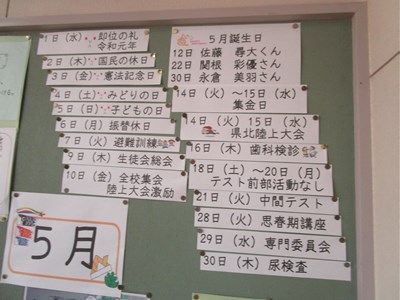 1日（水）即位の礼
令和元年
2日（木）国民の休日
3日（金）憲法記念日
4日（土）みどりの日
5日（日）子どもの日
6日（月）振替休日
7日（火）避難訓練
9日（木）生徒会総会
10日（金）全校集会
陸上大会激励
5月
5月誕生日
12日 佐藤 尋大くん
22日 関根 彩優さん
30日 永倉 美羽さん
14日（火）～15日（水）
集金日
14日（火）15日（水）
県北陸上大会
16日（木）歯科検診
18日（土）～20日（月）
テスト前部活動なし
21日（火）中間テスト
28日（火）思春期講座
29日（水）専門委員会
30日（木）尿検査